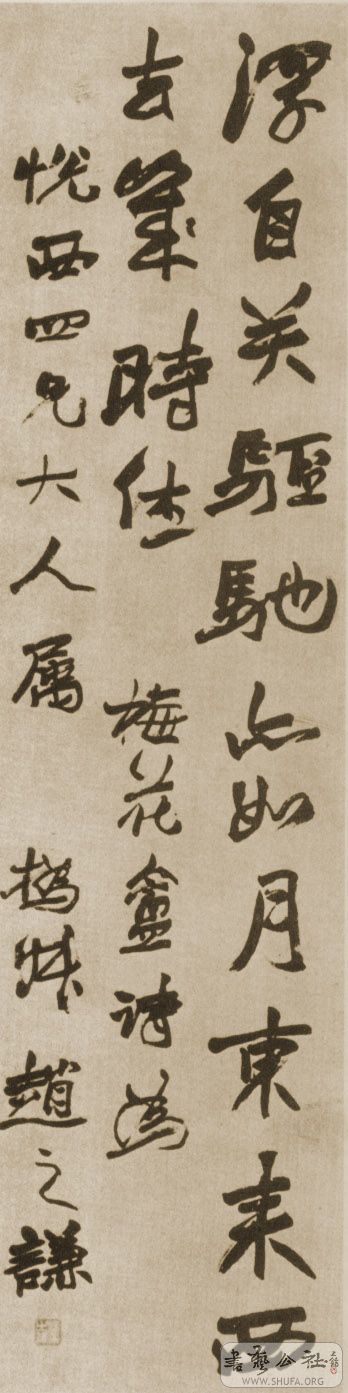 浮自笑驅馳亦如月東来西
去幾時休 梅花盦詩為
悦西四兄大人属 撝叔趙之謙
書藝公社
WWW.SHUFA.ORG